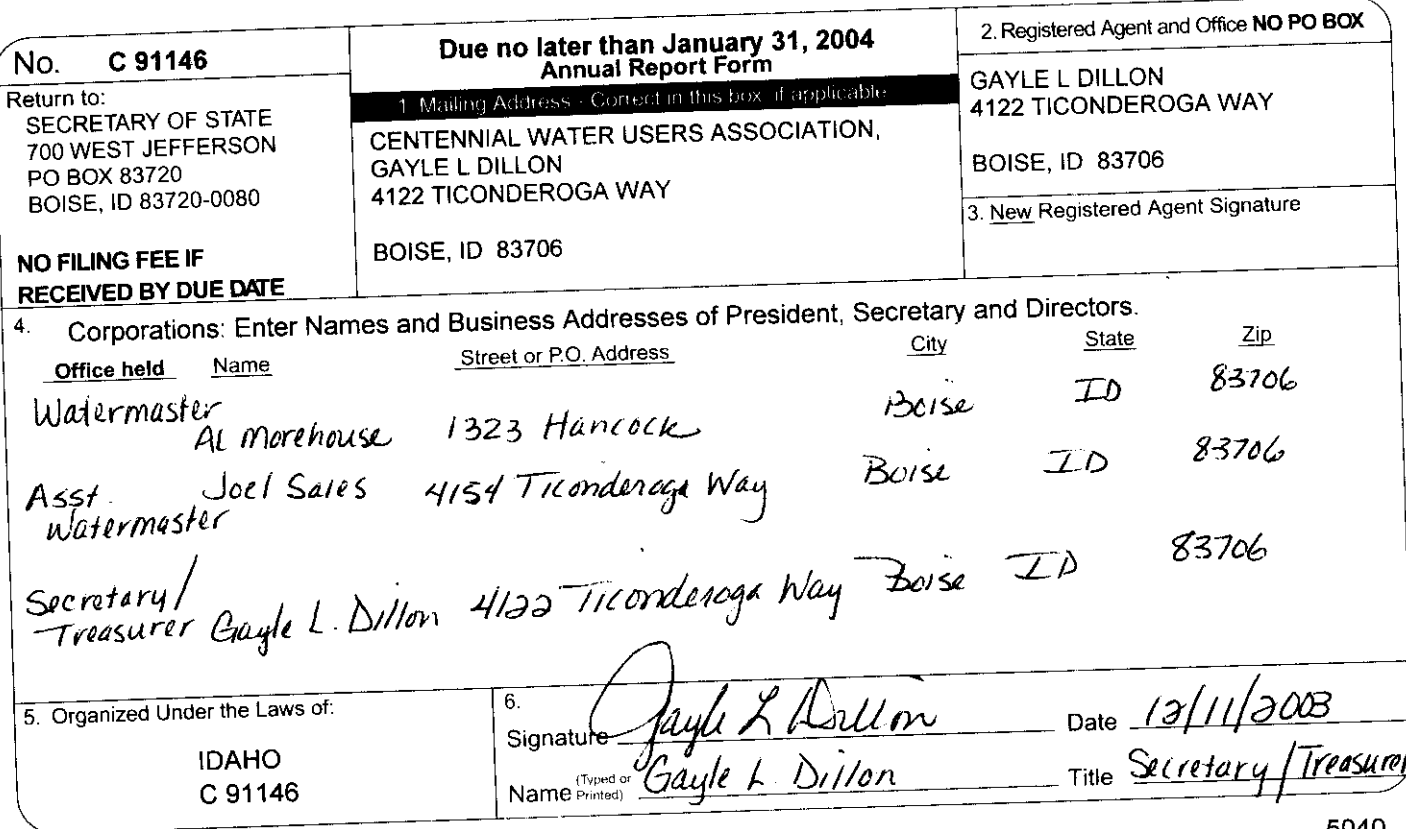 No. C 91146
Return to:
SECRETARY OF STATE
700 WEST JEFFERSON
PO BOX 83720
BOISE, ID 83720-0080
NO FILING FEE IF
RECEIVED BY DUE DATE
Due no later than January 31, 2004
Annual Report Form
1. Mailing Address - Correct in this box if applicable
CENTENNIAL WATER USERS ASSOCIATION,
GAYLE L DILLON
4122 TICONDEROGA WAY
BOISE, ID 83706
2. Registered Agent and Office NO PO BOX
GAYLE L DILLON
4122 TICONDEROGA WAY
BOISE, ID 83706
3. New Registered Agent Signature
4. Corporations: Enter Names and Business Addresses of President, Secretary and Directors.
Office held Name Street or P.O. Address City State Zip
Watermaster
AL Morehouse 1323 Hancock Boise ID 83706
Asst. Joel Sales 4154 Ticonderoga Way Boise ID 83706
Watermaster
Secretary/
Treasurer Gayle L. Dillon 4122 Ticonderoga Way Boise ID 83706
5. Organized Under the Laws of:
IDAHO
C 91146
6.
Signature Gayle L Dillon Date 12/11/2003
Name (Typed or Printed) Gayle L. Dillon Title Secretary/Treasurer
5040